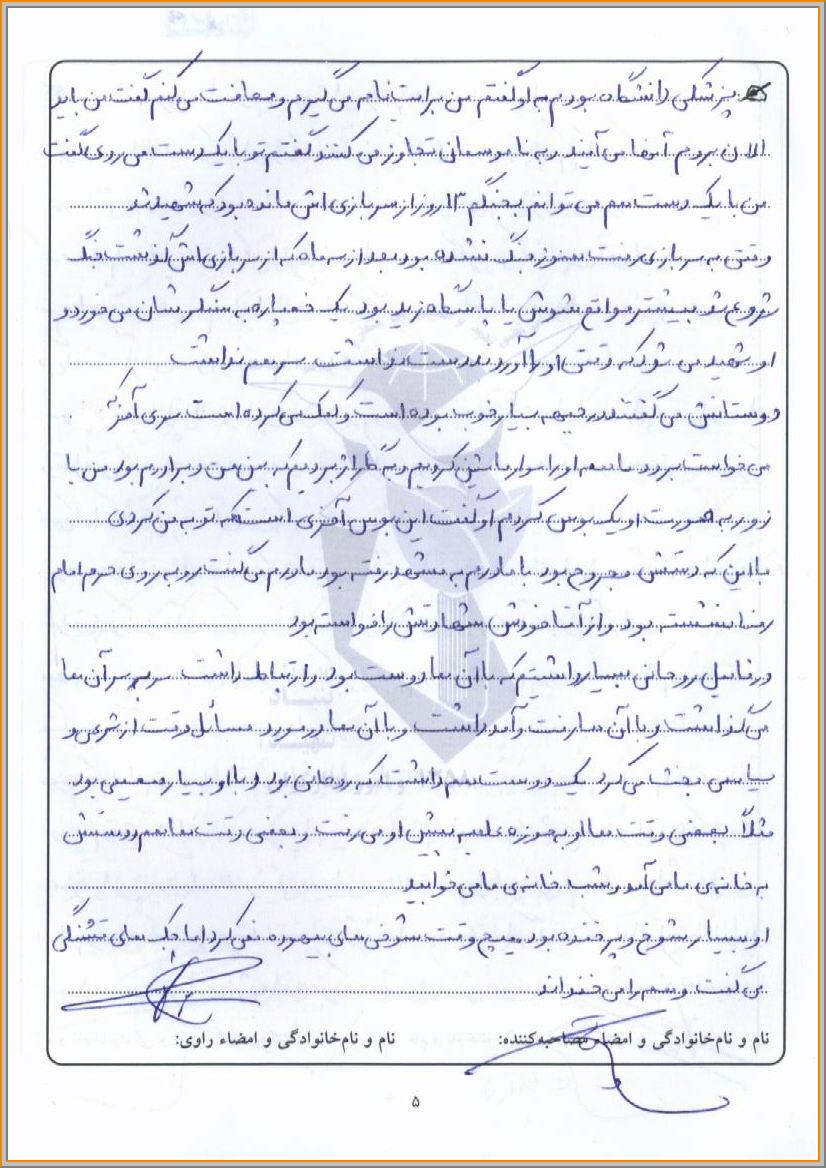 پزشکی دانشگاه بودم به او گفتم من برایت نامه می گیرم و معافت می کنم گفت من باید
الان بروم آنها می آیند و به ناموسمان تجاوز می کنند گفتم تو با یک دست می روی گفت
من با یک دست هم می توانم بجنگم ۱۳ روز از سربازی اش مانده بود که شهید شد
وقتی به سربازی رفت هنوز جنگ نشده بود بعد از سه ماه که از سربازی اش گذشت جنگ
شروع شد بیشتر مواقع شوش یا پاسگاه زید بود یک خمپاره به سنگرشان می خورد و
او شهید می شود که وقتی او را آوردند دست نداشت سر هم نداشت
دوستانش می گفتند در جبهه بسیار خوب بوده است و کمک می کرده است سری آخر که
می خواست برود ما همه او را سوار ماشین کردیم و به گاراژ بردیم که من و برادرم بود من با
زور به صورت او یک بوس کردم او گفت این بوس آخری است که تو به من کردی
با این که دستش مجروح بود با مادرم به مشهد رفته بود مادرم می گفت رو به روی حرم امام
رضا نشسته بود و از آقا خودش شهادتش را خواسته بود
در فامیل روحانی بسیار داشتیم که با آن ها دوست بود و ارتباط داشت سر به سر آن ها
می گذاشت و با آن ها رفت و آمد داشت و با آن ها در مورد مسائل وقت از شرعی و
سیاسی بحث می کرد یک دوست هم داشت که روحانی بود و با او بسیار صمیمی بود
مثلاً بعضی وقت ها او به حوزه علمیه پیش او می رفت و بعضی وقت ها هم دوستش
به خانه ی ما می آمد و شب خانه ی ما می خوابید
او بسیار شوخ و پر خنده بود هیچ وقت شوخی های بیهوده نمی کرد اما جک های قشنگی
می گفت و همه را می خنداند
نام و نام خانوادگی و امضاء مصاحبه کننده: نام و نام خانوادگی و امضاء راوی:
۵